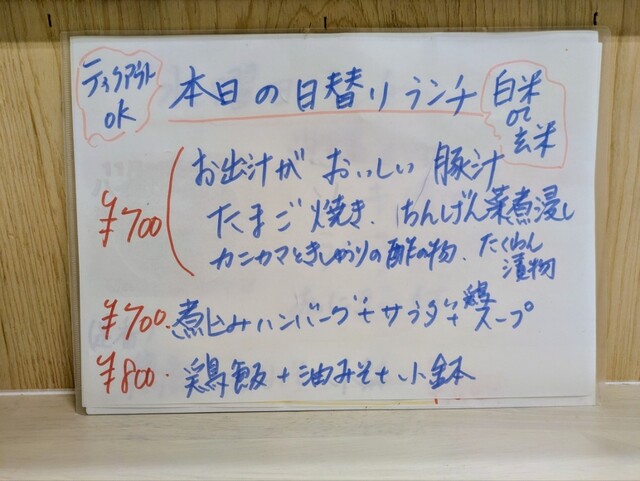 テイクアウト
OK
本日の日替りランチ
白米
or
玄米
¥700
お出汁がおいしい豚汁
たまご焼き、ちんげん菜煮浸し
カニカマときゅうりの酢の物、たくわん
漬物
¥700.煮込みハンバーグ+サラダ+鶏スープ
¥800.鶏飯+油みそ+小鉢